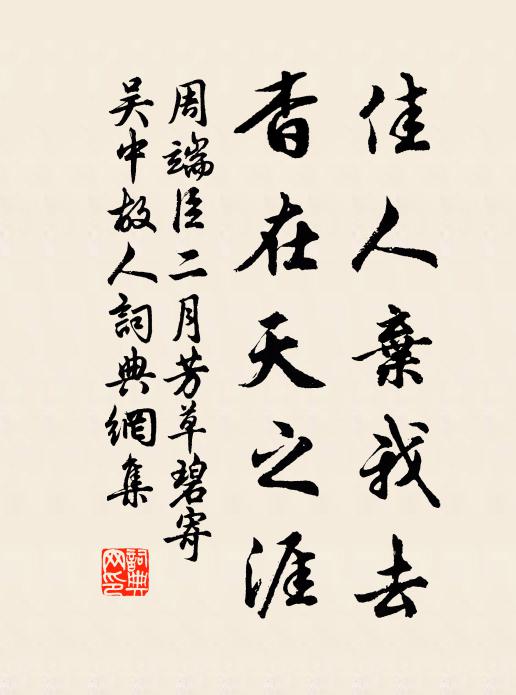 佳人棄我去
杳在天之涯
周端臣二月芳草碧寄
吳中故人詞典網集
詞典網印